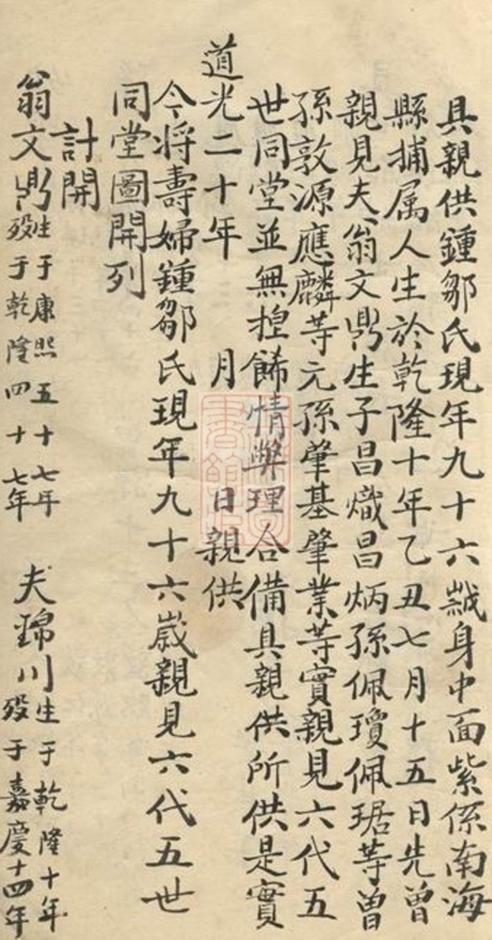 具親供鍾鄒氏現年九十六歲身中面紫係南海
縣捕属人生於乾隆十年乙丑七月十五日先曾
親見夫翁文鼎生子昌熾昌炳孫佩瓊佩琚等曾
孫敦源應麟等元孫肇基肇業等實親見六代五
世同堂並無揑餙情弊理合備具親供所供是實
道光二十年 月 日親供
今将壽婦鍾鄒氏現年九十六歲親見六代五世
同堂圖開列
計開
翁文鼎生于康熙五十七年 夫錦川生于乾隆十年
殁于乾隆四十七年 殁于嘉慶十四年